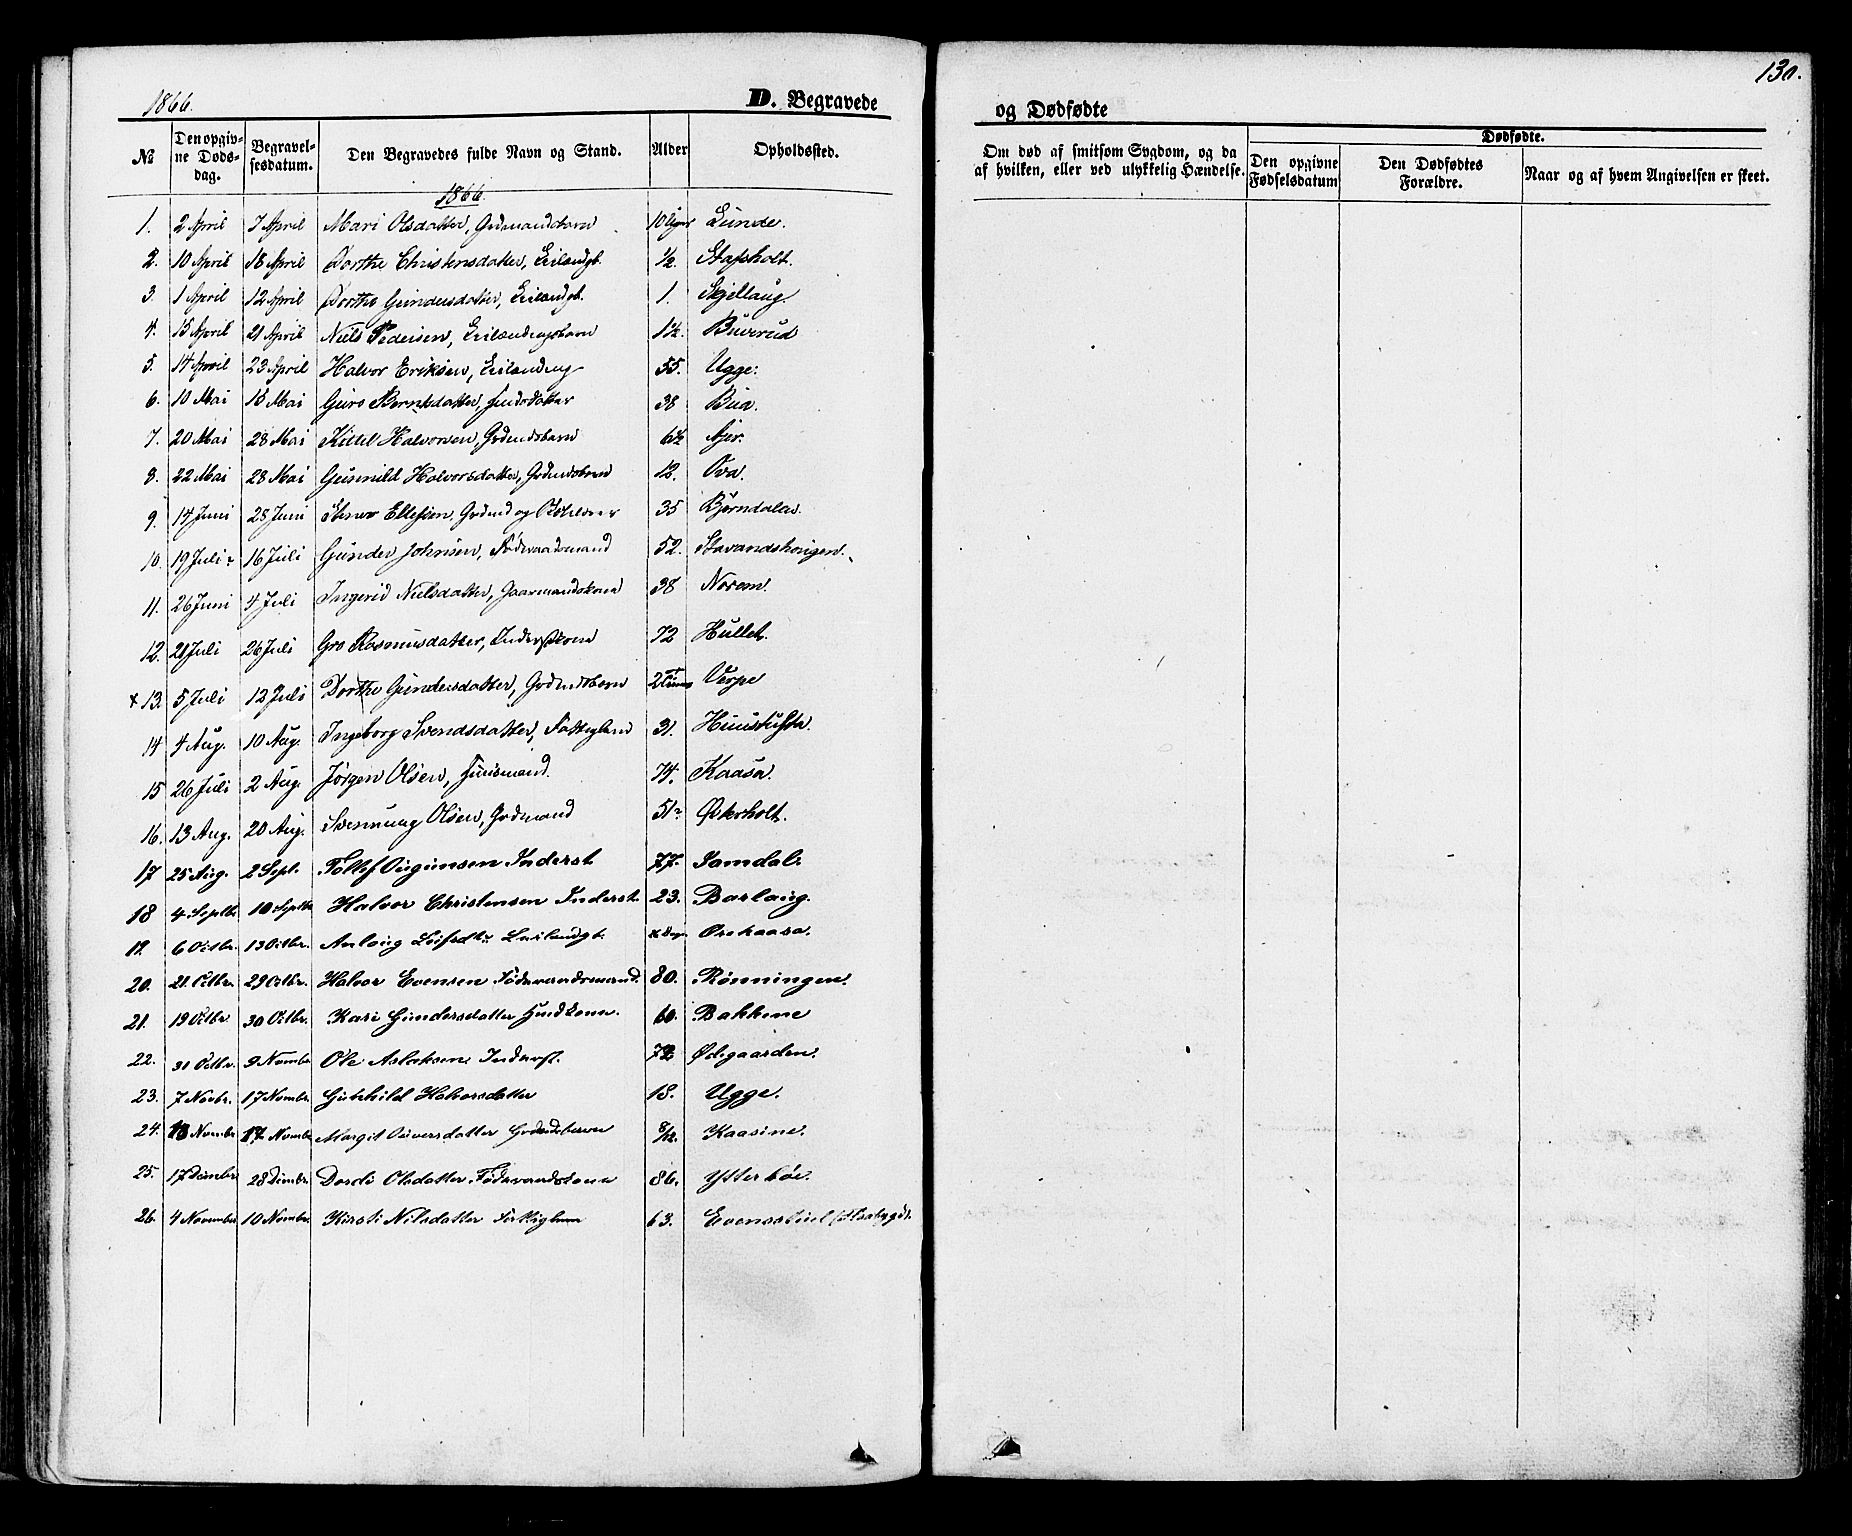 1866.
D. Begravede
og Dødfødte
130.
№
Den opgivne Dødsdag.
Begravelsesdatum.
Den Begravedes fulde Navn og Stand.
Alder
Opholdssted.
Om død af smitsom Sygdom, og da af hvilken, eller ved ulykkelig Hændelse.
Dødfødte.
Den opgivne Fødselsdatum
Den Dødfødtes Forældre.
Naar og af hvem Angivelsen er skeet.
1866.
1. 2 April 7 April Mari Olsdatter, Grdmandsbarn 10 Uger Lunde.
2. 10 April 18 April Dorthe Christensdatter, Leilændgb. ½. Stafsholt.
3. 1 April 12 April Dorthe Gundersdatter, Leilændgb. 1. Skjellaug.
4. 15 April 21 April Niels Pedersen, Leilændingsbarn 1½. Buverud
5. 14 April 23 April Halvor Eriksen, Leilænding 55. Ugge.
6. 10 Mai 15 Mai Guro Berntsdatter, 38 Bua.
7. 20 Mai 28 Mai Kittel Halvorsen, Grdmdsbarn 6½ Ajer.
8. 22 Mai 28 Mai Gunnild Halvorsdatter, Grdmdsbarn 12. Ova.
9. 14 Juni 28 Juni Ellefsen, Grdmd og 35 Bjørndalen.
10. 19 Juli 16 Juli Gunder Johnsen, Føderaadsmand 52. Stavandshougen.
11. 26 Juni 4 Juli Ingerid Nielsdatter, Gaarmandskone 38 Norem.
12. 21 Juli 26 Juli Gro Rasmusdatter, Inderstkone 72 Hullet.
x 13. 5 Juli 12 Juli Dorthe Gundersdatter, Grdmdsbarn 2 Timer Verpe
14 4 Aug. 10 Aug. Ingeborg Svendsdatter, Fattiglem 31.
15 26 Juli 2 Aug. Jørgen Olsen, Huusmand. 74. Kaasa.
16. 13 Aug. 20 Aug. Svennung Olsen, Grdmand 51 Økerholt.
17 25 Aug. 2 Sept. Tollef Ougunsen Inderst 77. Jamdal.
18 4 Septbr 10 Septbr Halvor Christensen Inderst. 23. Barlaug.
19. 6 Octbr. 13 Octbr. Aslaug Leifsdtr. Leilændgb. Dage. Orekaasa.
20. 21 Octbr. 29 Octbr. Halvor Evensen Føderaadsmand. 80. Rønningen.
21. 19 Octbr 30 Octbr. Kari Gundersdatter Husdkone. 60. Bakkene
22. 31 Octbr. 9 Novmbr Ole Aslaksen Inderst. 72 Ødegaarden.
23. 7 Novbr. 17 Novmbr. Gunhild Halvorsdatter 18. Ugge.
24. 13 Novmbr 17 Novmbr Margit Oliversdatter Grdmdsbarn 8/12. Kaasine.
25. 17 Decmbr 28 Decmbr. Dordi Olsdatter Føderaadskone 86. Ytterbøe.
26. 4 November 10 Novmbr. Kirsti Nilsdatter Fattiglem 63.